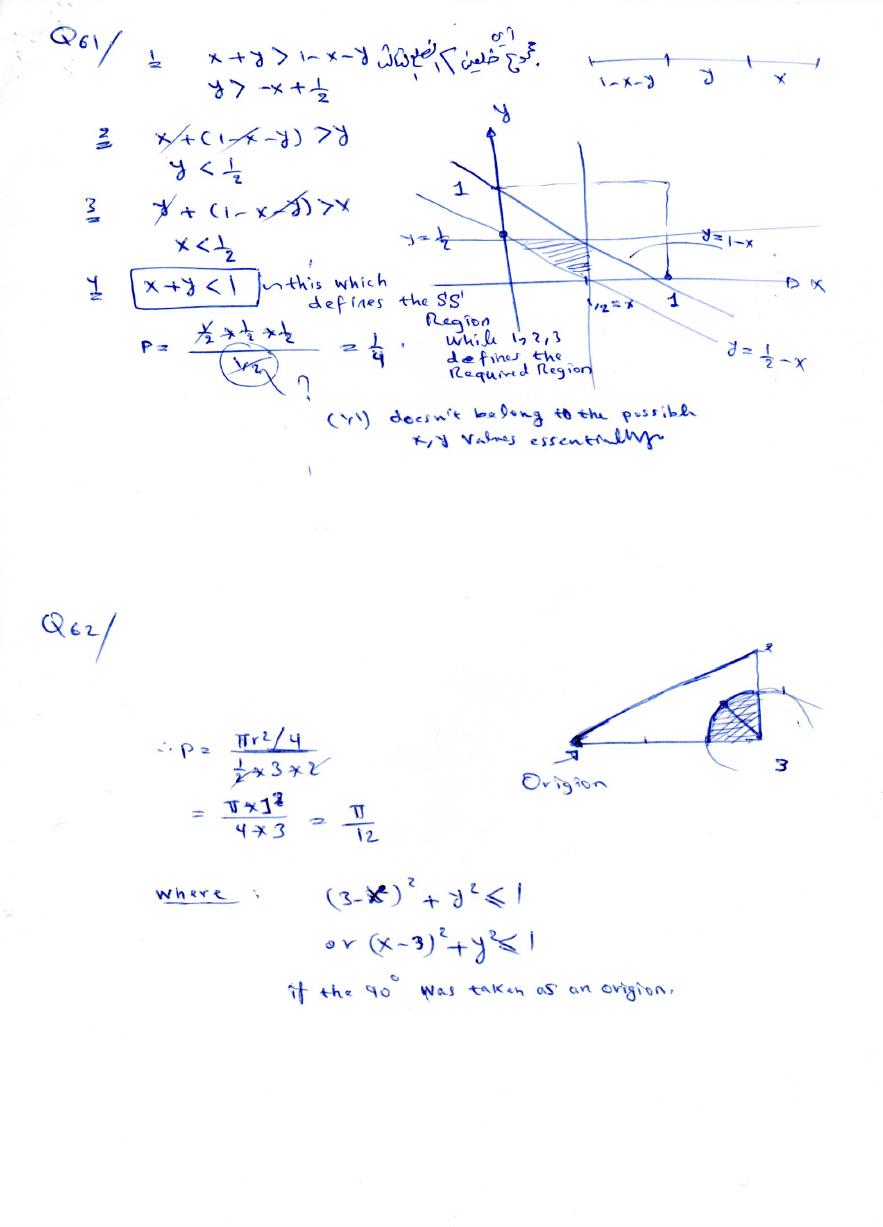 Q61/
1 x + y > 1 - x - y مجموع أي ضلعين > الضلع الثالث.
y > -x + 1/2
1-x-y y x
2 x + (1 - x - y) > y
y < 1/2
3 y + (1 - x - y) > x
x < 1/2
4 x + y < 1 this which
defines the SS
Region
while 1, 2, 3
defines the
Required Region
P = 1/2 * 1/2 * 1/2 / 1/2 = 1/4 .
?
y
1
y = 1/2
y = 1-x
x
1/2 = x
1
y = 1/2 - x
(1,1) doesn't belong to the possible
x, y values essentially
Q62/
2
∴ P = πr²/4 / 1/2 * 3 * 2
= π * 1² / 4 * 3 = π / 12
Origion
1
3
where : (3-x)² + y² ≤ 1
or (x-3)² + y² ≤ 1
if the 90° was taken as an origion.